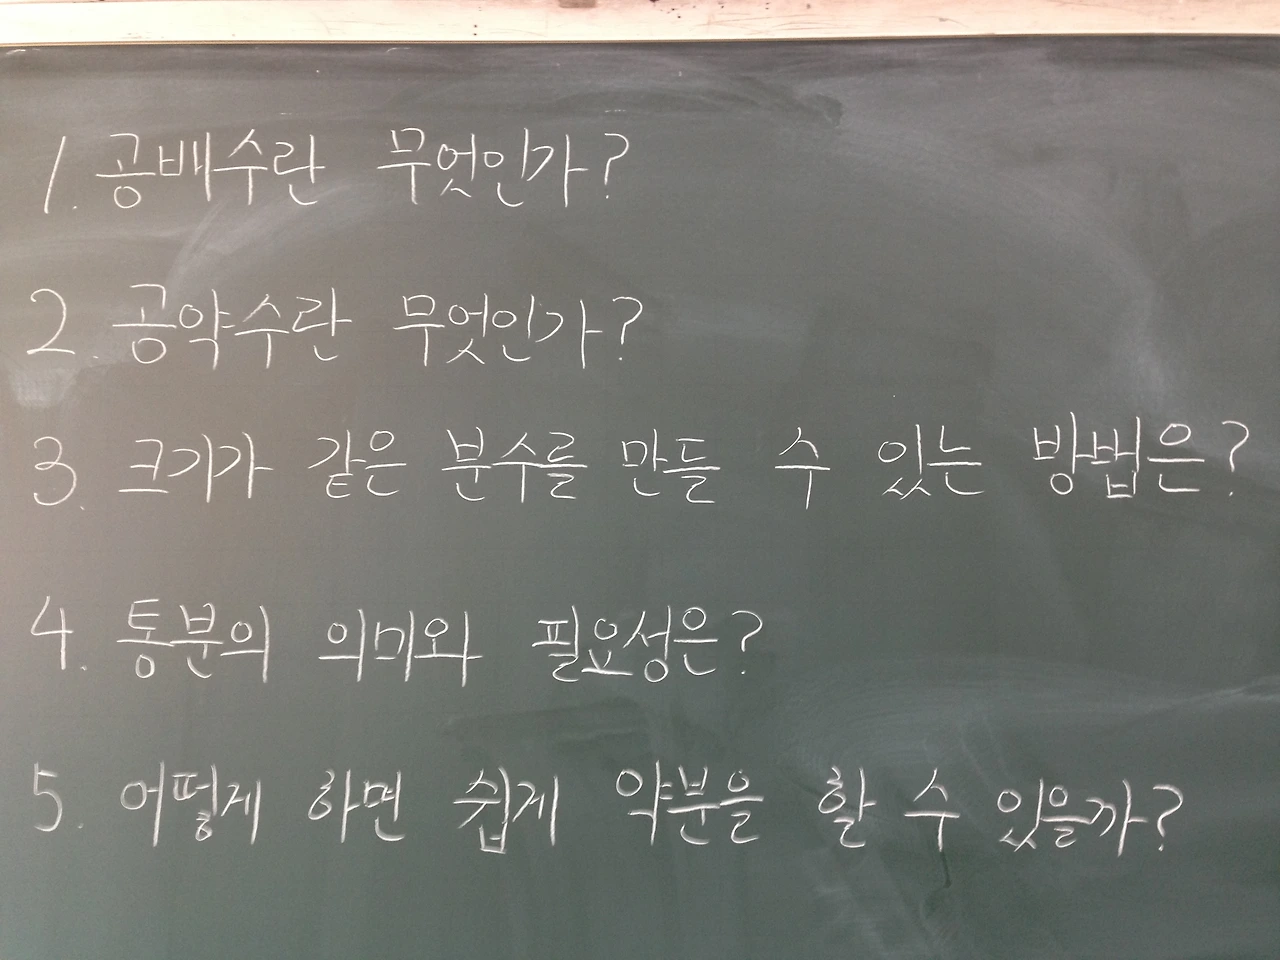 1. 공배수란 무엇인가?
2. 공약수란 무엇인가?
3. 크기가 같은 분수를 만들 수 있는 방법은?
4. 통분의 의미와 필요성은?
5. 어떻게 하면 쉽게 약분을 할 수 있을까?